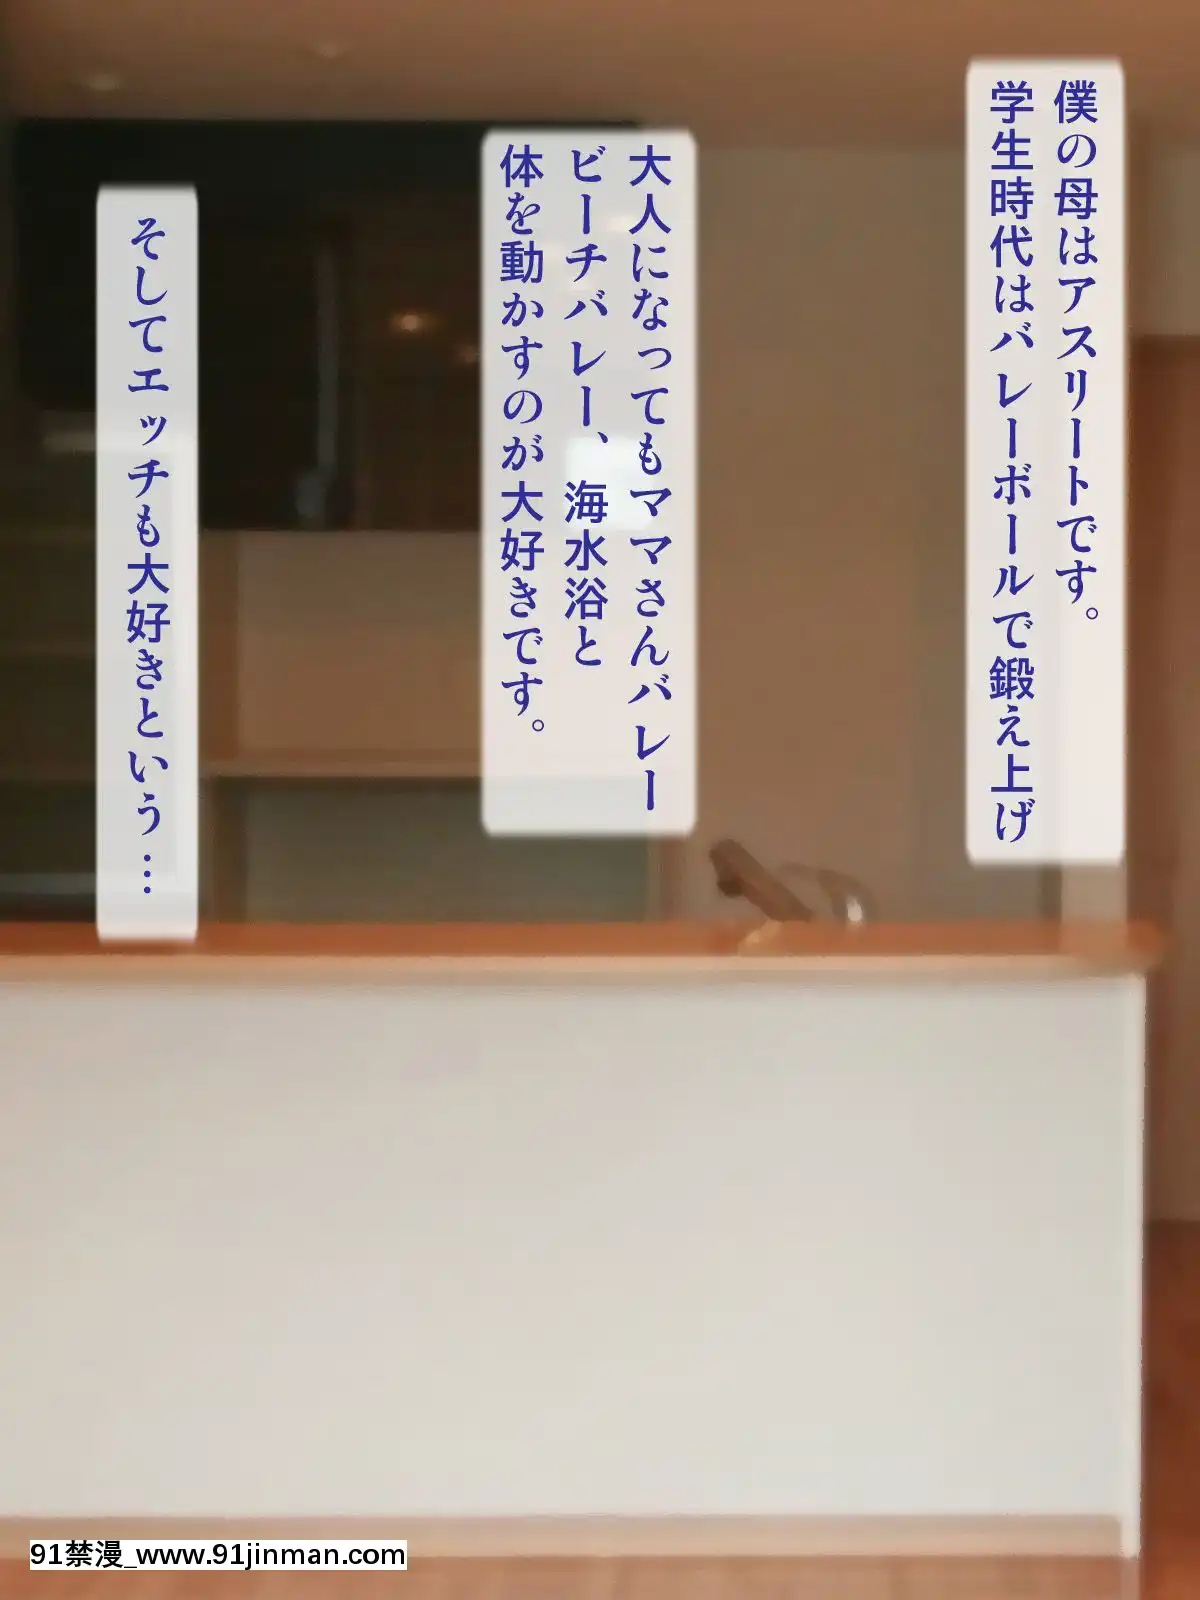 僕の母はアスリートです。
学生時代はバレーボールで鍛え上げ
大人になってもママさんバレー
ビーチバレー、海水浴と
体を動かすのが大好きです。
そしてエッチも大好きという…
91禁漫_www.91jinman.com